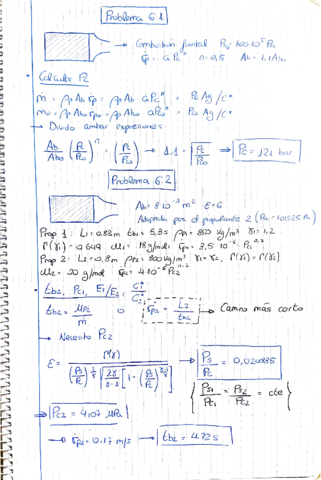 Problema 6.1
Combustión frontal Pc₀ = 100·10⁵ Pa
ṙp = a Pcⁿ n = 0,5 Ab = 1,1 Ab₀
Calcular Pc
ṁ = ρp Ab ṙp = ρp Ab a Pcⁿ = Pc Ag / c*
ṁ₀ = ρp Ab₀ ṙp₀ = ρp Ab₀ a Pc₀ⁿ = Pc₀ Ag / c*
→ Divido ambas expresiones:
Ab/Ab₀ (Pc/Pc₀)ⁿ = (Pc/Pc₀) → 1.1 = √(Pc/Pc₀) ⇒ Pc = 121 bar
Problema 6.2
Ab = 8·10⁻³ m² E = 6
Adaptada por el propulsante 2 (Pa = 101325 Pa)
Prop 1: L₁ = 0.88 m tb₁ = 5,3 s ρp₁ = 850 kg/m³ γ₁ = 1,2
Γ(γ₁) = 0.649 M₁ = 18 g/mol
Prop 2: L₂ = 0,8 m ρp₂ = 800 kg/m³ γ₁ = γ₂, Γ(γ₁) = Γ(γ₂)
M₂ = 20 g/mol
tb₂, Pc₁, E₁/E₂
tb₂ = Mp₂/ṁ o ṙp₂ = L₂/tb₂ → Camino más corto
→ Necesito Pc₂
→ Ps/Pc = 0,024885
{ Ps₁/Pc₁ = Ps₂/Pc₂ = cte }
⇒ Pc₂ = 4,07 MPa
→ ṙp₂ = 0.17 m/s → tb₂ = 4.72 s